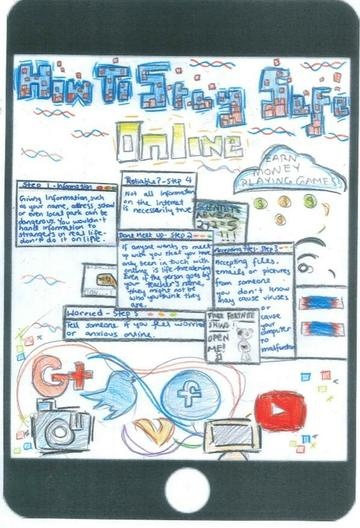 How To Stay Safe
Online
EARN
MONEY
PLAYING GAMES!
Step 1 - Information
Giving information such
as your name, address, school
or even local park can be
dangerous. You wouldn't
hand information to
strangers in real life-
don't do it online
Reliable? - Step 4
Not all information
on the internet
is necessarily true
SCIENTISTS
REVEAL
Dont Meet Up - Step 2
If anyone wants to meet
up with you that you have
only been in touch with
online is life-threatening
Even if the person goes by
your teacher's name,
they might not be
who you think they
are.
Accepting Files - Step 3
Accepting files,
emails or pictures
from someone
you don't know
may cause viruses
or
cause
your
computer
to
malfunction
Worried - Step 5
Tell someone if you feel worried
or anxious online.
FREE FORTNITE
SKINS
OPEN
ME!
G+
f